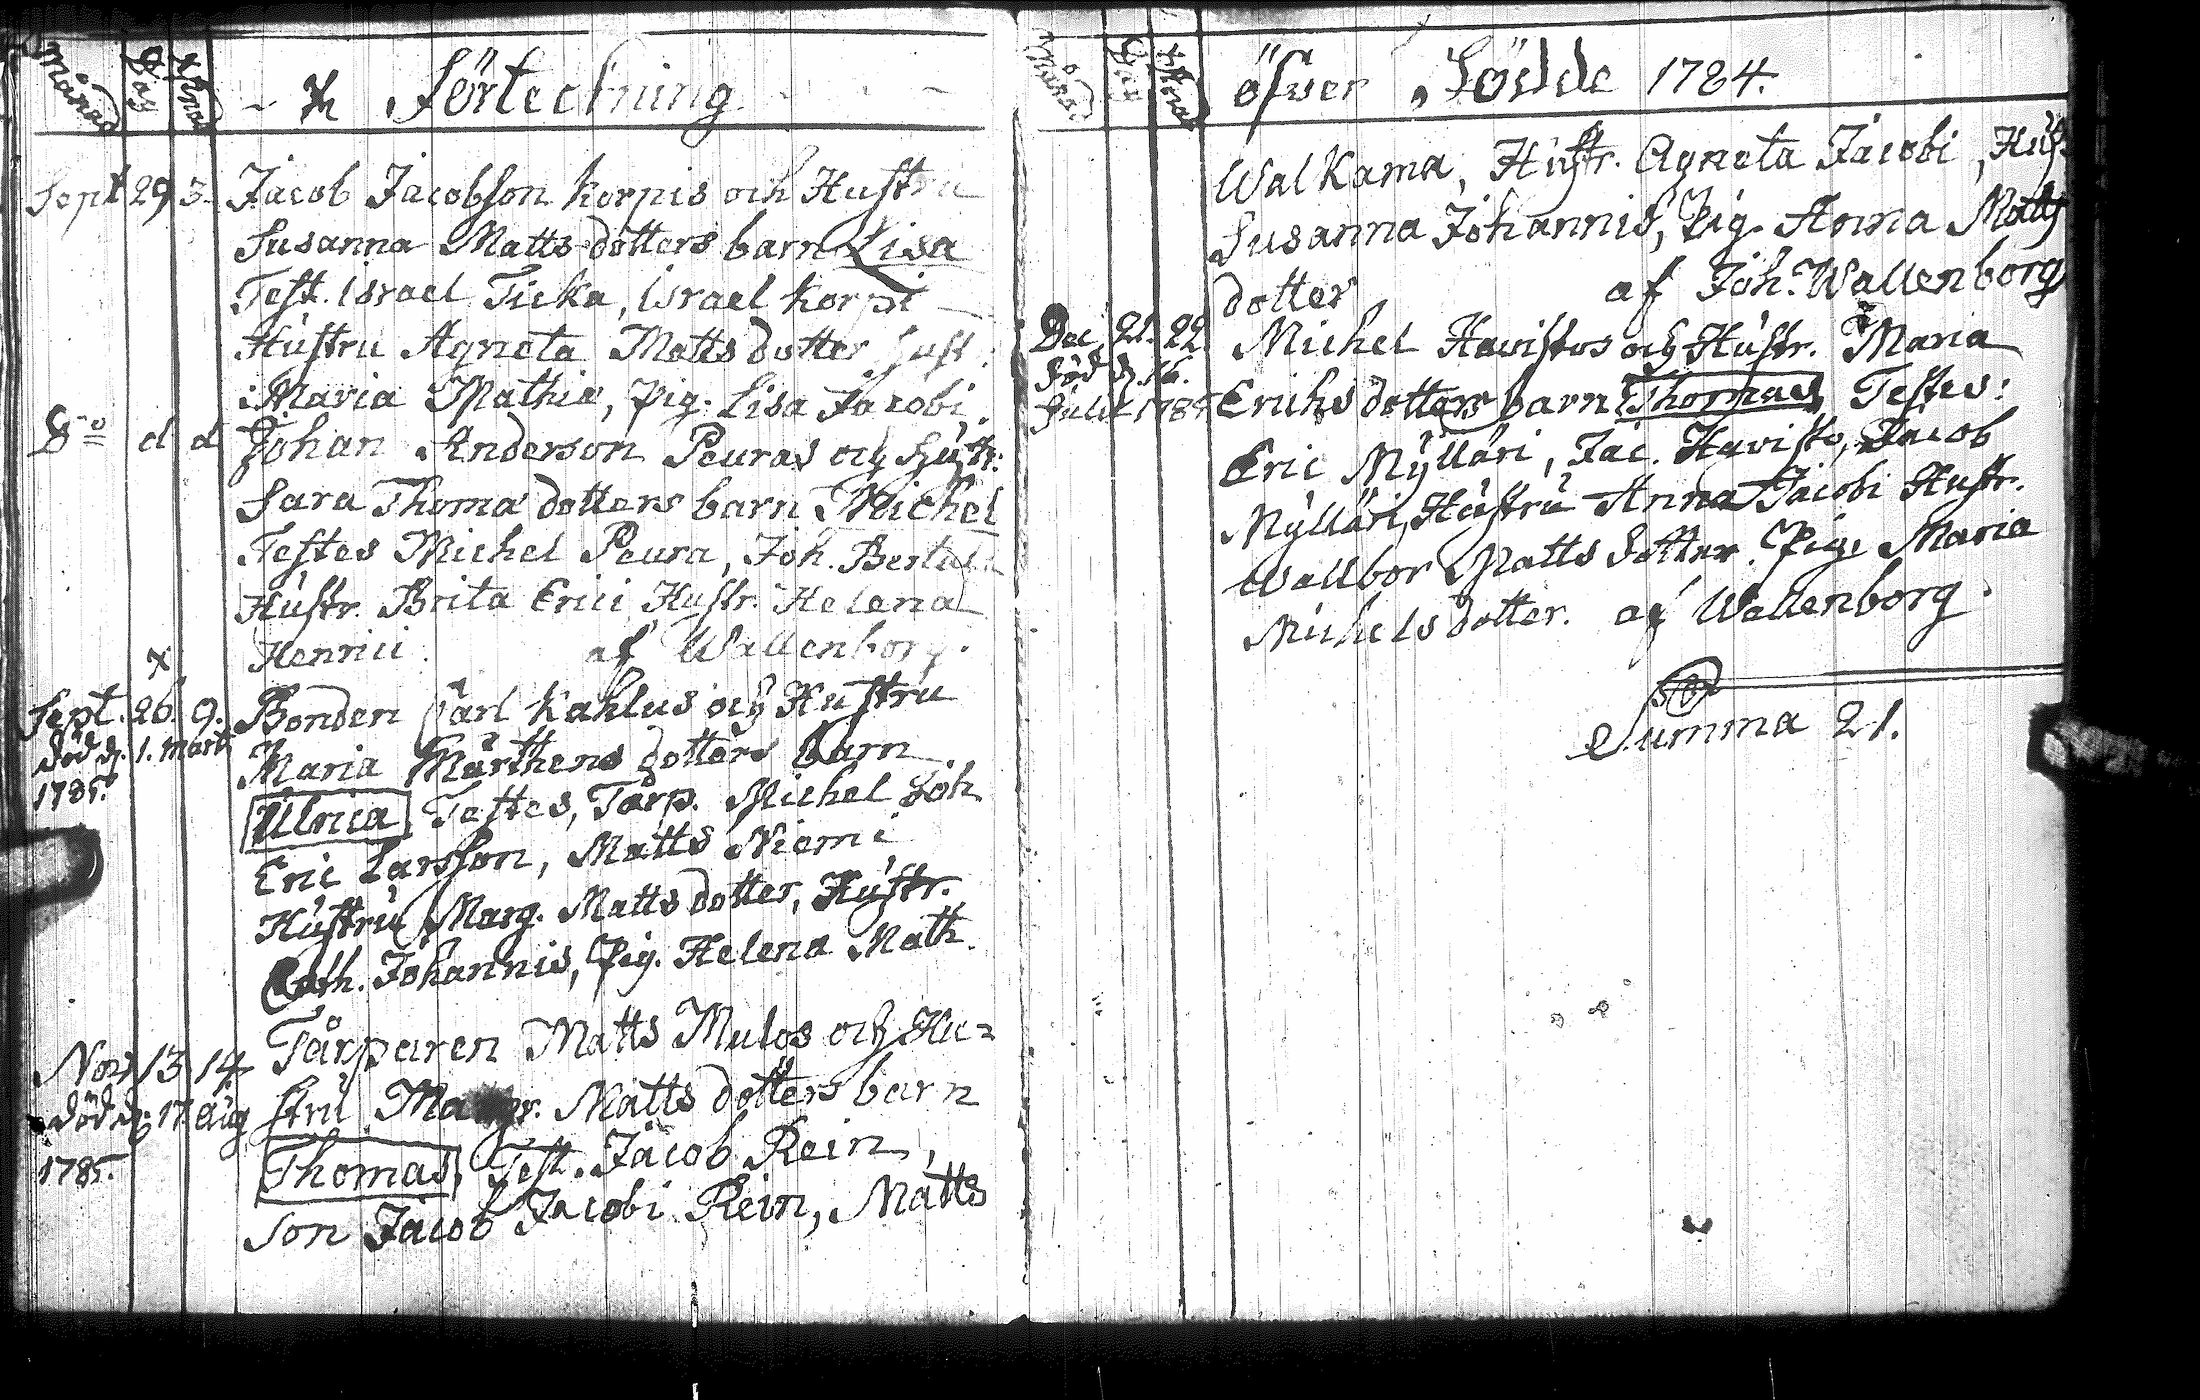 Månad Dag
Förteckning
Sept 29 3. Jacob Jacobsson Korpis och Hustru
Susanna Matts dotters barn Lisa
Test. Israel Ticka, Israel Korpi
Hustru Agneta Matts dotter Hust.
Maria Mathiæ, Pig. Lisa Jacobi.
D:o d d Johan Anderson Peuras och Hustr.
Sara Thomæ dotters barn Michel
Testes Michel Peura, Joh.
Hustr. Brita Erici Hustr. Helena
Henrici. af Wallenborg.
x
Sept. 26. 9. Bonden Carl Kahlus och Hustru
död d. 1. Marti Maria Mårthens dotters barn
1785. Ulrica Testes, Tårp. Michel Joh.
Eric Larsson, Matts Niemi
Hustru Marg. Matts dotter, Hustr.
Cath. Johannis, Pig. Helena Math.
Nov. 13 14 Tårparen Matts Mulos och Hu=
död d. 17. Aug stru Margr. Matts dotters barn
1785. Thomas, Test. Jacob Rein,
son Jacob Jacobi Rein, Matts
Månad Dag
öfver Födde 1784.
Walkama, Hustr. Agneta Jacobi, Hust.
Susanna Johannis, Pig. Anna Matts
dotter af Joh. Wallenborg
Dec. 21. 22. Michel Havistos och Hustr. Maria
död d. 16. Erichs dotters barn Thomas Testes:
Julii
Eric Mÿlläri, Jac. Havisto, Jacob
Mÿlläri, Hustru Anna Jacobi Hustr.
Wallbor Matts dotter. Pig. Maria
Michels dotter. af Wallenborg.
Summa 21.